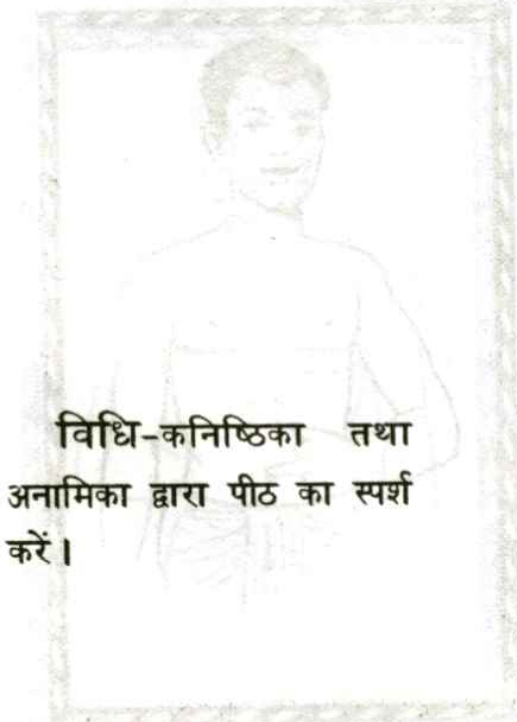 विधि-कनिष्ठिका तथा
अनामिका द्वारा पीठ का स्पर्श
करें।